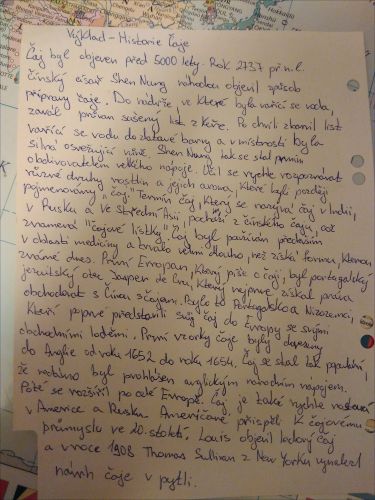 Výklad - Historie čaje
Čaj byl objeven před 5000 lety. Rok 2737 př.n.l.
čínský císař Shen Nung náhodou objevil způsob
přípravy čaje. Do nádrže, ve které byla vařící se voda,
zavál poryvem sušený list z keře. Po chvíli zbarvil list
vařící se vodu do zlatavé barvy a v místnosti byla
silná osvěžující vůně. Shen Nung tak se stal prvním
obdivovatelem velkého nápoje. Učil se rychle rozpoznávat
různé druhy rostlin a jejich aroma, které byli později
pojmenovány "čaj". Termín čaj, který se nazývá čaj v Indii,
v Rusku a ve Střední Asii, pochází z čínského čaju, což
znamená "čajové lístky". Čaj byl používán především
v oblasti medicíny a trvalo velmi dlouho, než získal formu, kterou
známe dnes. První Evropan, který píše o čaji, byl portugalský
jezuitský otec Jasper de Cruz, který nejprve získal práva
obchodovat s Čínou s čajem. Bylo to Portugalsko a Nizozemci,
kteří poprvé představili svůj čaj do Evropy se svými
obchodními loděmi. První vzorky čaje byly dopraveny
do Anglie od roku 1652 do roku 1654. Čaj se stal tak populární,
že nedávno byl prohlášen anglickým národním nápojem.
Poté se rozšířil po celé Evropě. Čaj je také rychle
v Americe a Rusku. Američané přispěli k čajovému
průmyslu ve 20. století. Louis objevil ledový čaj
a v roce 1908 Thomas Sullivan z New Yorku vynalezl
návrh čaje v pytli.